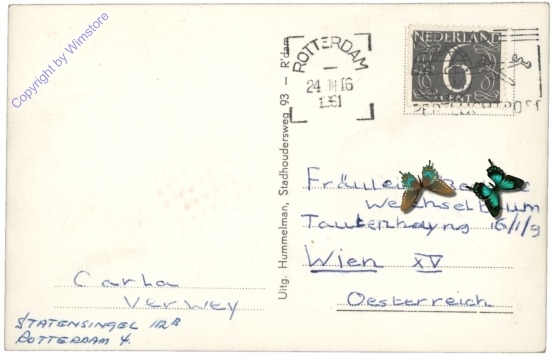 Copyright by Wimstore
ROTTERDAM
24 III 16
1961
NEDERLAND
6
CENT
PER LUCHTPOST
Uitg. Hummelman, Stadhoudersweg 93 — R'dam
Fräulein
Wechselbaum
16/1/9
Wien XV
Oesterreich
Carla
Verwey
STATENSINGEL 112B
ROTTERDAM 4.